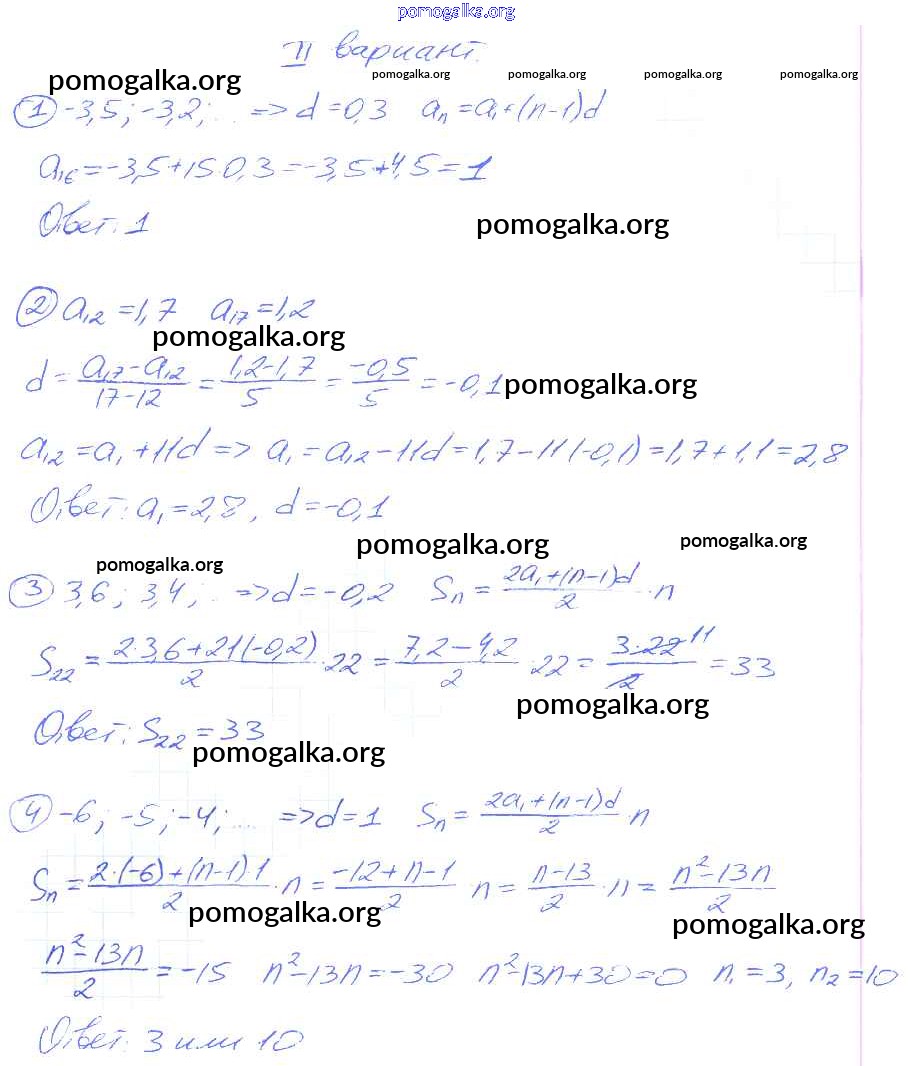 pomogalka.org
II вариант.
pomogalka.org pomogalka.org pomogalka.org pomogalka.org pomogalka.org
① -3,5; -3,2; ... => d = 0,3 aₙ = a₁ + (n-1)d
a₁₆ = -3,5 + 15·0,3 = -3,5 + 4,5 = 1
Ответ: 1
pomogalka.org
② a₁₂ = 1,7 a₁₇ = 1,2
pomogalka.org
d = (a₁₇ - a₁₂)/(17-12) = (1,2-1,7)/5 = (-0,5)/5 = -0,1
pomogalka.org
a₁₂ = a₁ + 11d => a₁ = a₁₂ - 11d = 1,7 - 11(-0,1) = 1,7 + 1,1 = 2,8
Ответ: a₁ = 2,8, d = -0,1
pomogalka.org pomogalka.org
pomogalka.org
③ 3,6; 3,4; ... => d = -0,2 Sₙ = (2a₁ + (n-1)d)/2 · n
S₂₂ = (2·3,6 + 21(-0,2))/2 · 22 = (7,2 - 4,2)/2 · 22 = (3·22 11)/2 = 33
pomogalka.org
Ответ: S₂₂ = 33
pomogalka.org
④ -6; -5; -4; ... => d = 1 Sₙ = (2a₁ + (n-1)d)/2 · n
Sₙ = (2·(-6) + (n-1)·1)/2 · n = (-12 + n - 1)/2 n = (n-13)/2 · n = (n² - 13n)/2
pomogalka.org pomogalka.org
(n² - 13n)/2 = -15 n² - 13n = -30 n² - 13n + 30 = 0 n₁ = 3, n₂ = 10
Ответ: 3 или 10